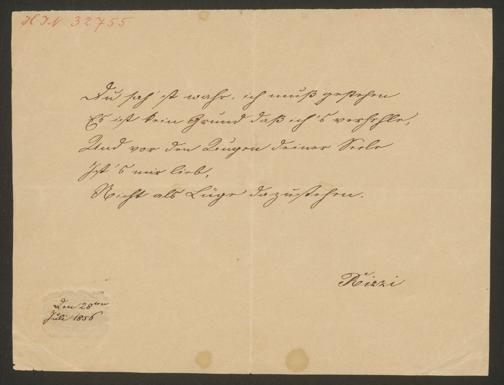 HIN 32755
Du sah'st wahr, ich muß gestehen
Es ist kein Grund daß ich's verhehle,
Und vor den Augen deiner Seele
Ist's mir lieb,
Nicht als Lüge dazustehen.
Rizzi
Den 28ten
Juli 1856